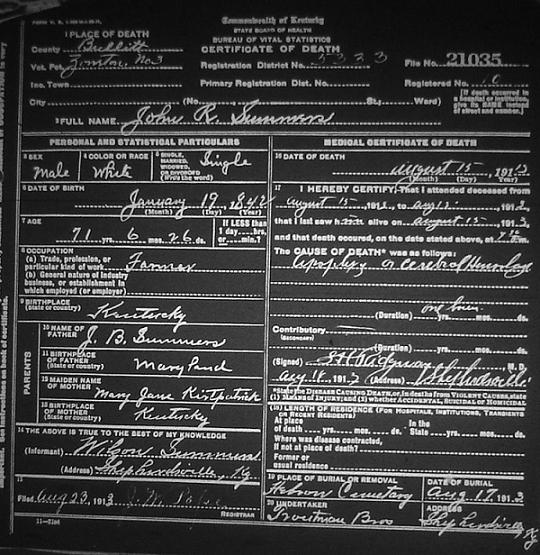 Commonwealth of Kentucky
STATE BOARD OF HEALTH
BUREAU OF VITAL STATISTICS
CERTIFICATE OF DEATH
1 PLACE OF DEATH
County Bullitt
Vot. Pct. Zoneton No 3
Inc. Town
City (No. St.; Ward)
Registration District No. 5323
Primary Registration Dist. No.
File No. 21035
Registered No.
[If death occurred in a hospital or institution, give its NAME instead of street and number.]
2 FULL NAME John R. Summers
PERSONAL AND STATISTICAL PARTICULARS
3 SEX Male
4 COLOR OR RACE White
5 SINGLE, MARRIED, WIDOWED, OR DIVORCED (Write the word) Single
6 DATE OF BIRTH January 19, 1842
(Month) (Day) (Year)
7 AGE 71 yrs. 6 mos. 26 ds.
If LESS than 1 day, hrs. or min.?
8 OCCUPATION
(a) Trade, profession, or particular kind of work Farmer
(b) General nature of industry business, or establishment in which employed (or employer)
9 BIRTHPLACE
(State or country) Kentucky
PARENTS
10 NAME OF FATHER J. B. Summers
11 BIRTHPLACE OF FATHER
(State or country) Maryland
12 MAIDEN NAME OF MOTHER Mary Jane Kirkpatrick
13 BIRTHPLACE OF MOTHER
(State or country) Kentucky
14 THE ABOVE IS TRUE TO THE BEST OF MY KNOWLEDGE
(Informant) Wilson Summers
(Address) Shepherdsville, Ky
15
Filed Aug 23, 1913
REGISTRAR
11-2184
MEDICAL CERTIFICATE OF DEATH
16 DATE OF DEATH
August 15, 1913
(Month) (Day) (Year)
17 I HEREBY CERTIFY, That I attended deceased from
August 15, 1913, to Aug 15, 1913,
that I last saw h alive on August 15, 1913,
and that death occurred, on the date stated above, at m.
The CAUSE OF DEATH* was as follows:
Apoplexy or Cerebral
(Duration) yrs. mos. ds.
Contributory
(SECONDARY)
(Duration) yrs. mos. ds.
(Signed) M. D.
Aug 16, 1913 (Address) Shepherdsville
*State the DISEASE CAUSING DEATH, or, in deaths from VIOLENT CAUSES, state (1) MEANS OF INJURY; and (2) whether ACCIDENTAL, SUICIDAL or HOMICIDAL
18 LENGTH OF RESIDENCE (FOR HOSPITALS, INSTITUTIONS, TRANSIENTS OR RECENT RESIDENTS)
At place of death yrs. mos. ds. In the State yrs. mos. ds.
Where was disease contracted, if not at place of death?
Former or usual residence
19 PLACE OF BURIAL OR REMOVAL
Hebron Cemetary
DATE OF BURIAL
Aug 17, 1913
20 UNDERTAKER
Troutman Bros
ADDRESS
Shepherdsville, Ky